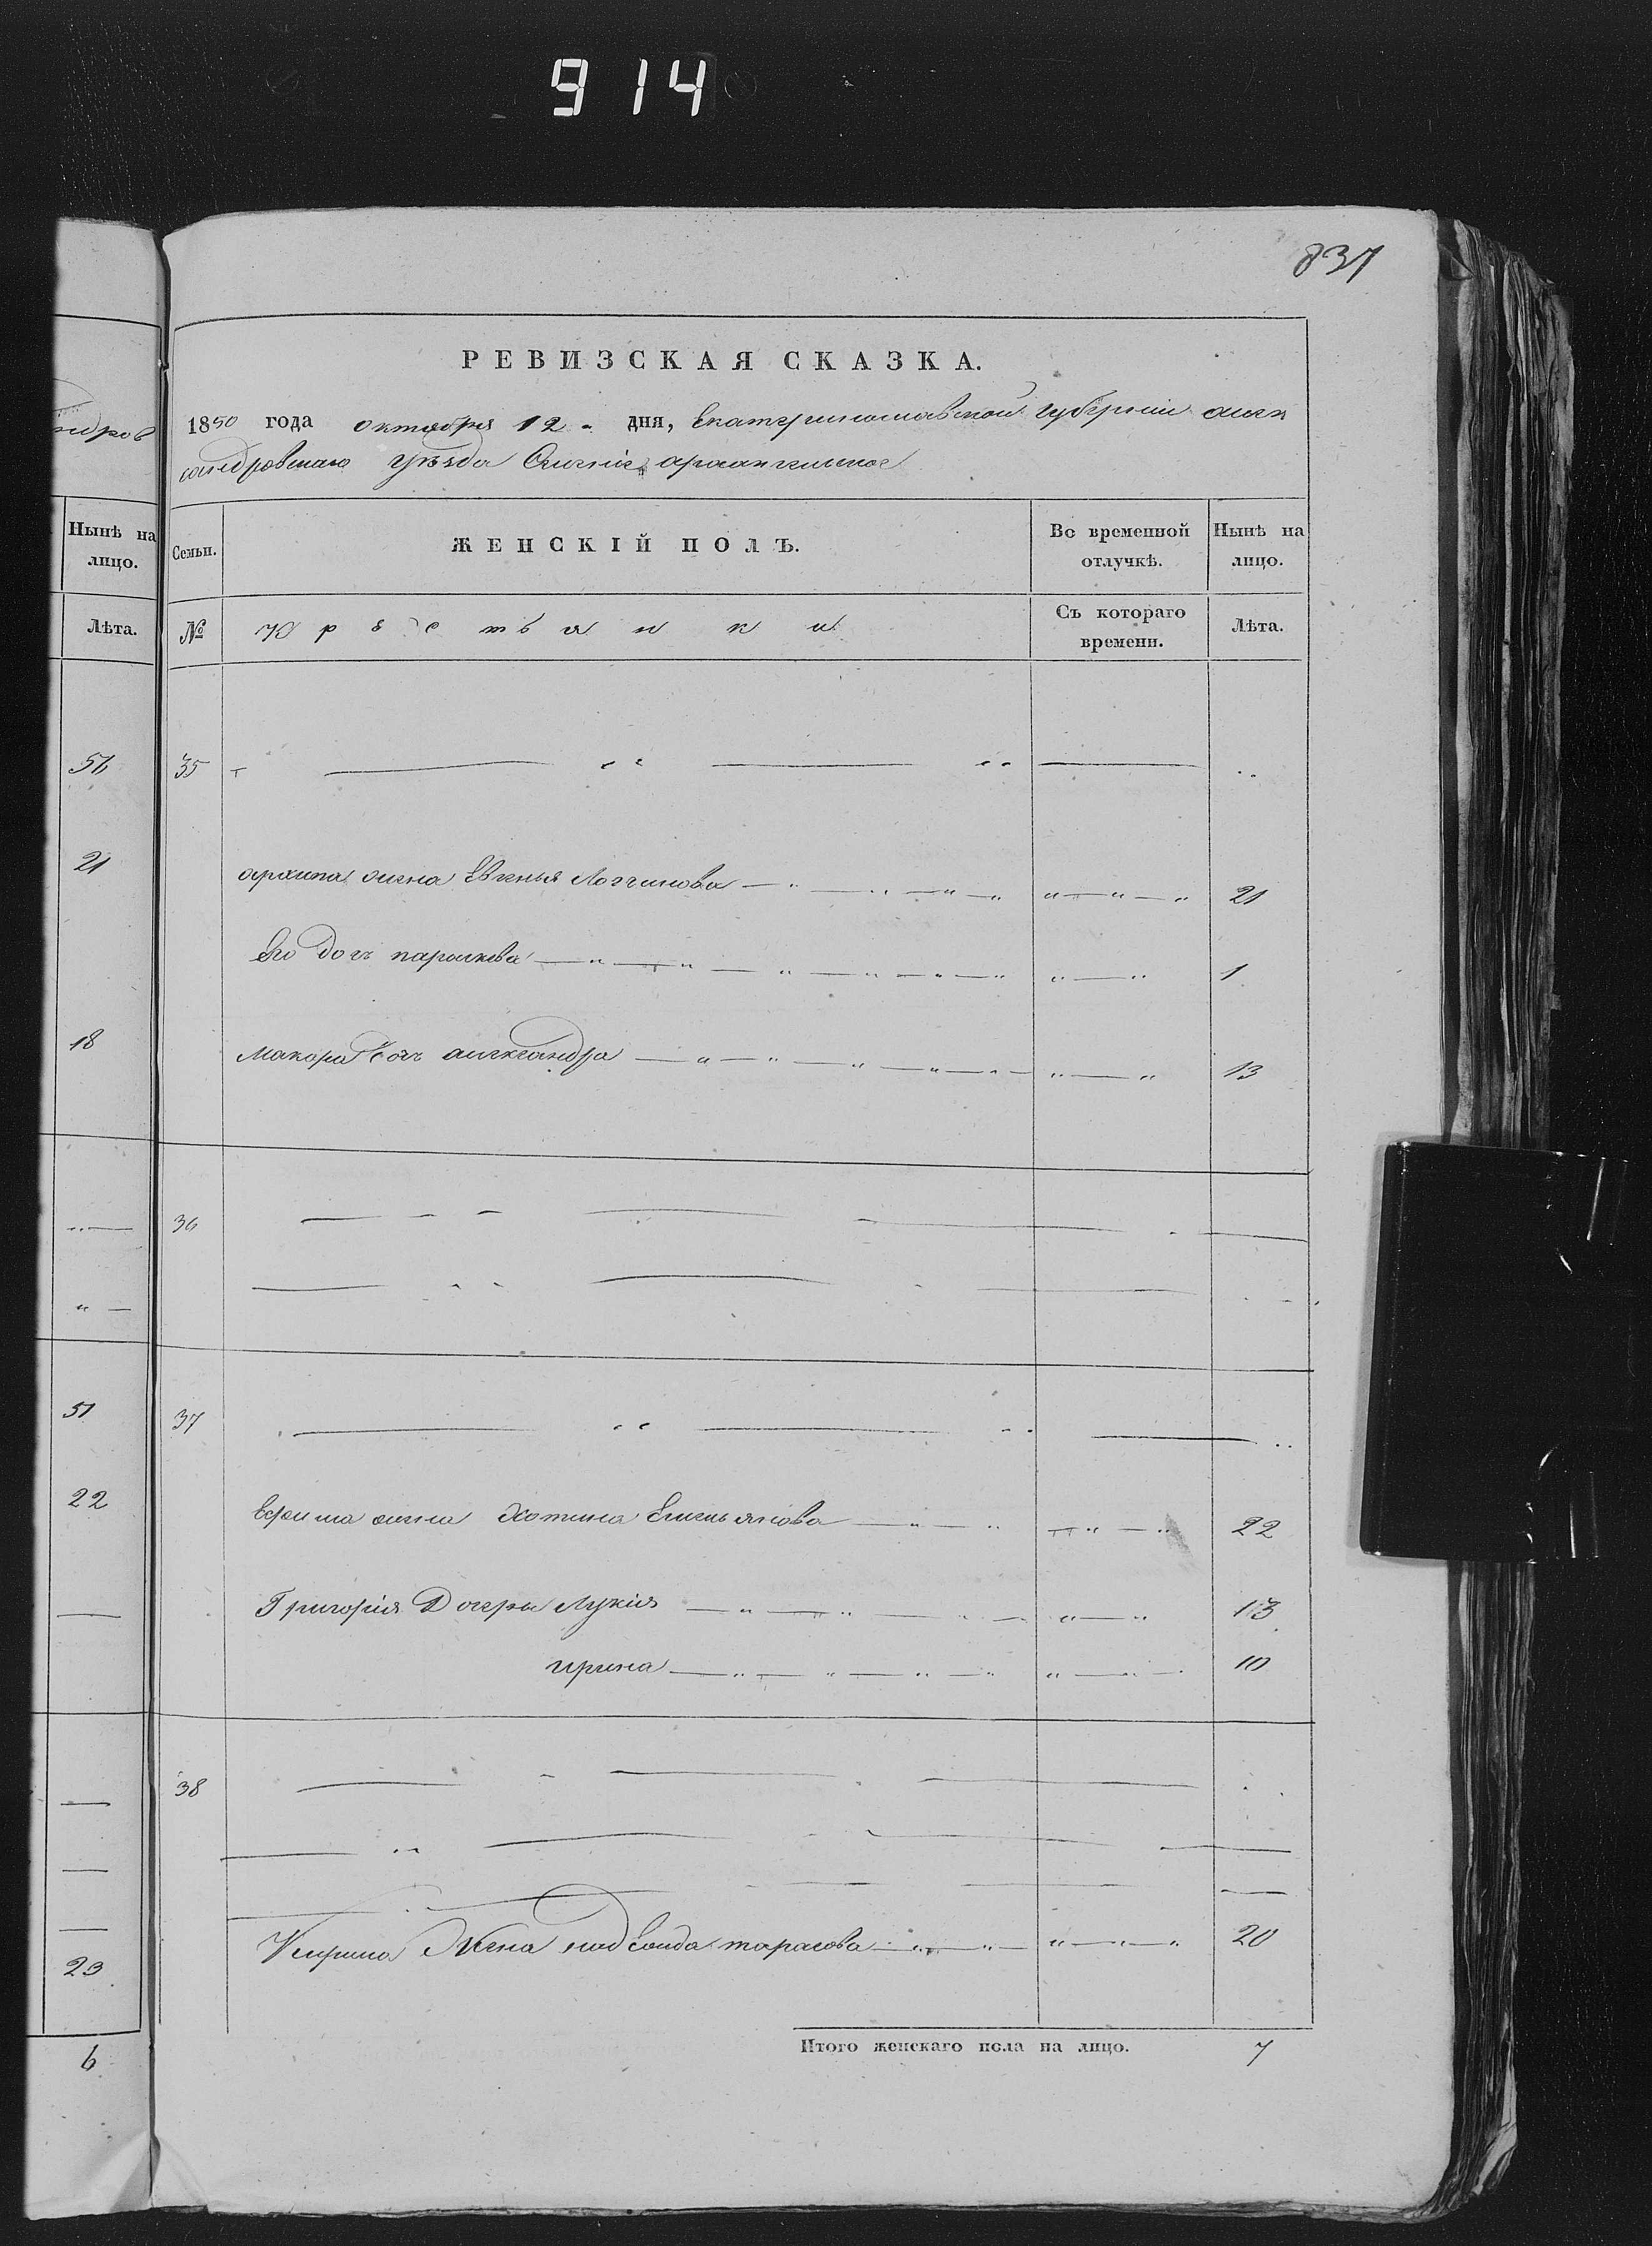 914
837
РЕВИЗСКАЯ СКАЗКА.
1850 года октября 12 дня, Екатеринославской губернии алек
сандровскаго уѣзда
ндров
Нынѣ на лицо.
Семьи.
ЖЕНСКІЙ ПОЛЪ.
Во временной отлучкѣ.
Нынѣ на лицо.
Лѣта.
№
Крестьянки
Съ котораго времени.
Лѣта.
56
35
21
архипа жена Евгенья Логгинова 21
Его дочь парасковья 1
18
Макара дочь александра 13
36
51
37
22
Ефима жена Хотина Емельянова 22
Григорія Дочеры Лукія 13
ирина 10
38
Жена тарасова 20
23
6
Итого женскаго пола на лицо. 7